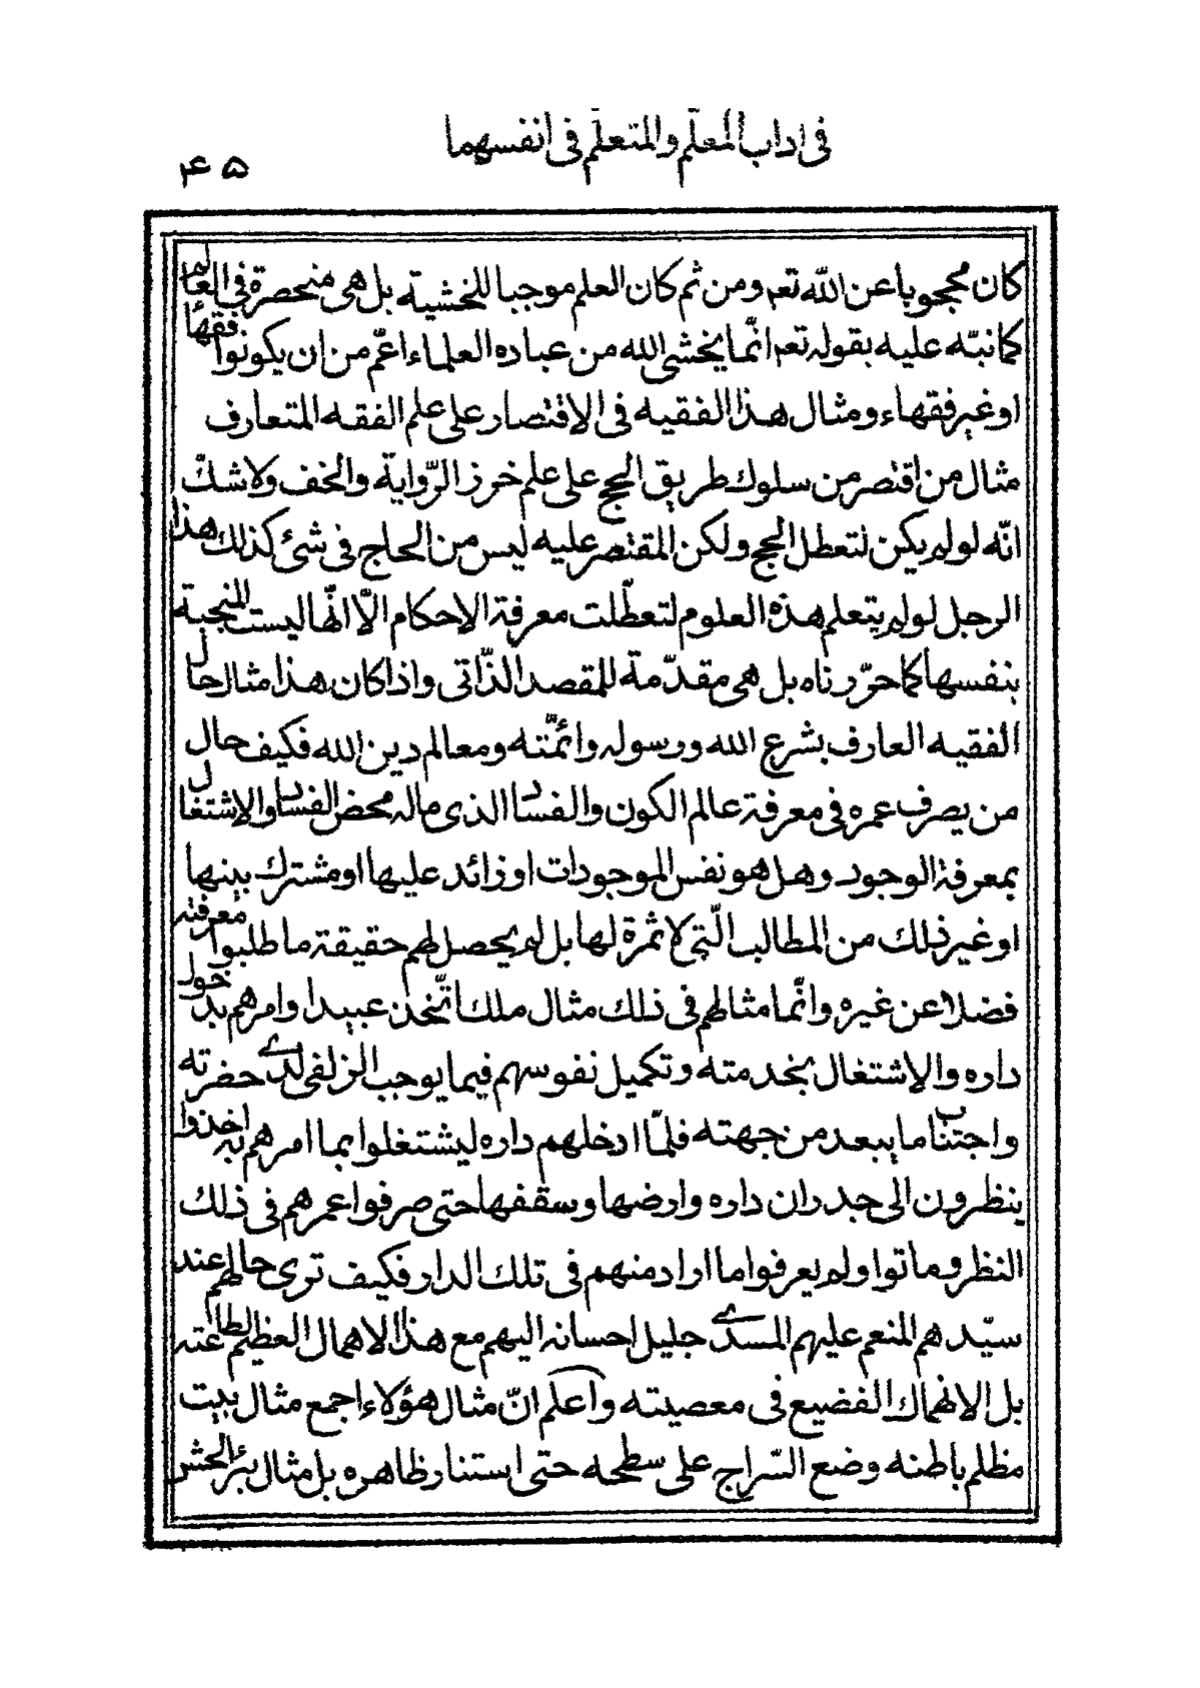 فى اداب المعلّم والمتعلّم فى انفسهما
۴۵
كان محجوبا عن اللّه تعه ومن ثم كان العلم موجبا للخشية بل هى منحصرة فى العالم
كما نبّه عليه بقوله تعه انّما يخشى الله من عباده العلماء اعمّ من ان يكونوا فقهاء
او غير فقهاء ومثال هذا الفقيه فى الاقتصار على علم الفقه المتعارف
مثال من اقتصر من سلوك طريق الحج على علم خرز الرّواية والخف ولا شكّ
انّه لو لم يكن لتعطل الحج ولكن المقتصر عليه ليس من الحاج فى شئ كذلك هذا
الرجل لو لم يتعلم هذه العلوم لتعطّلت معرفة الاحكام الّا انّها ليست المنجية
بنفسها كما حرّرناه بل هى مقدّمة للمقصد الذّاتى واذا كان هذا مثال حال
الفقيه العارف بشرع الله ورسوله وائمّته ومعالم دين الله فكيف حال
من يصرف عمره فى معرفة عالم الكون والفساد الذى ماله محض الفساد والاشتغال
بمعرفة الوجود وهل هو نفس الموجودات او زائد عليها او مشترك بينها
او غير ذلك من المطالب الّتى لا ثمرة لها بل لم يحصل لهم حقيقة ما طلبوا معرفته
فضلا عن غيره وانّما مثالهم فى ذلك مثال ملك اتّخذ عبيدا وامرهم بدخول
داره والاشتغال بخدمته وتكميل نفوسهم فيما يوجب الزلفى لدى حضرته
واجتناب ما يبعد من جهته فلمّا ادخلهم داره ليشتغلوا بما امرهم به اخذوا
ينظرون الى جدران داره وارضها وسقفها حتى صرفوا عمرهم فى ذلك
النظر وماتوا ولم يعرفوا ما اراد منهم فى تلك الدار فكيف ترى حالهم عند
سيّدهم المنعم عليهم المسدى جليل احسانه اليهم مع هذا الاهمال العظيم لطاعته
بل الانهماك الفضيع فى معصيته واعلم انّ مثال هؤلاء اجمع مثال بيت
مظلم باطنه وضع السّراج على سطحه حتى استنار ظاهره بل مثال بئر الحش